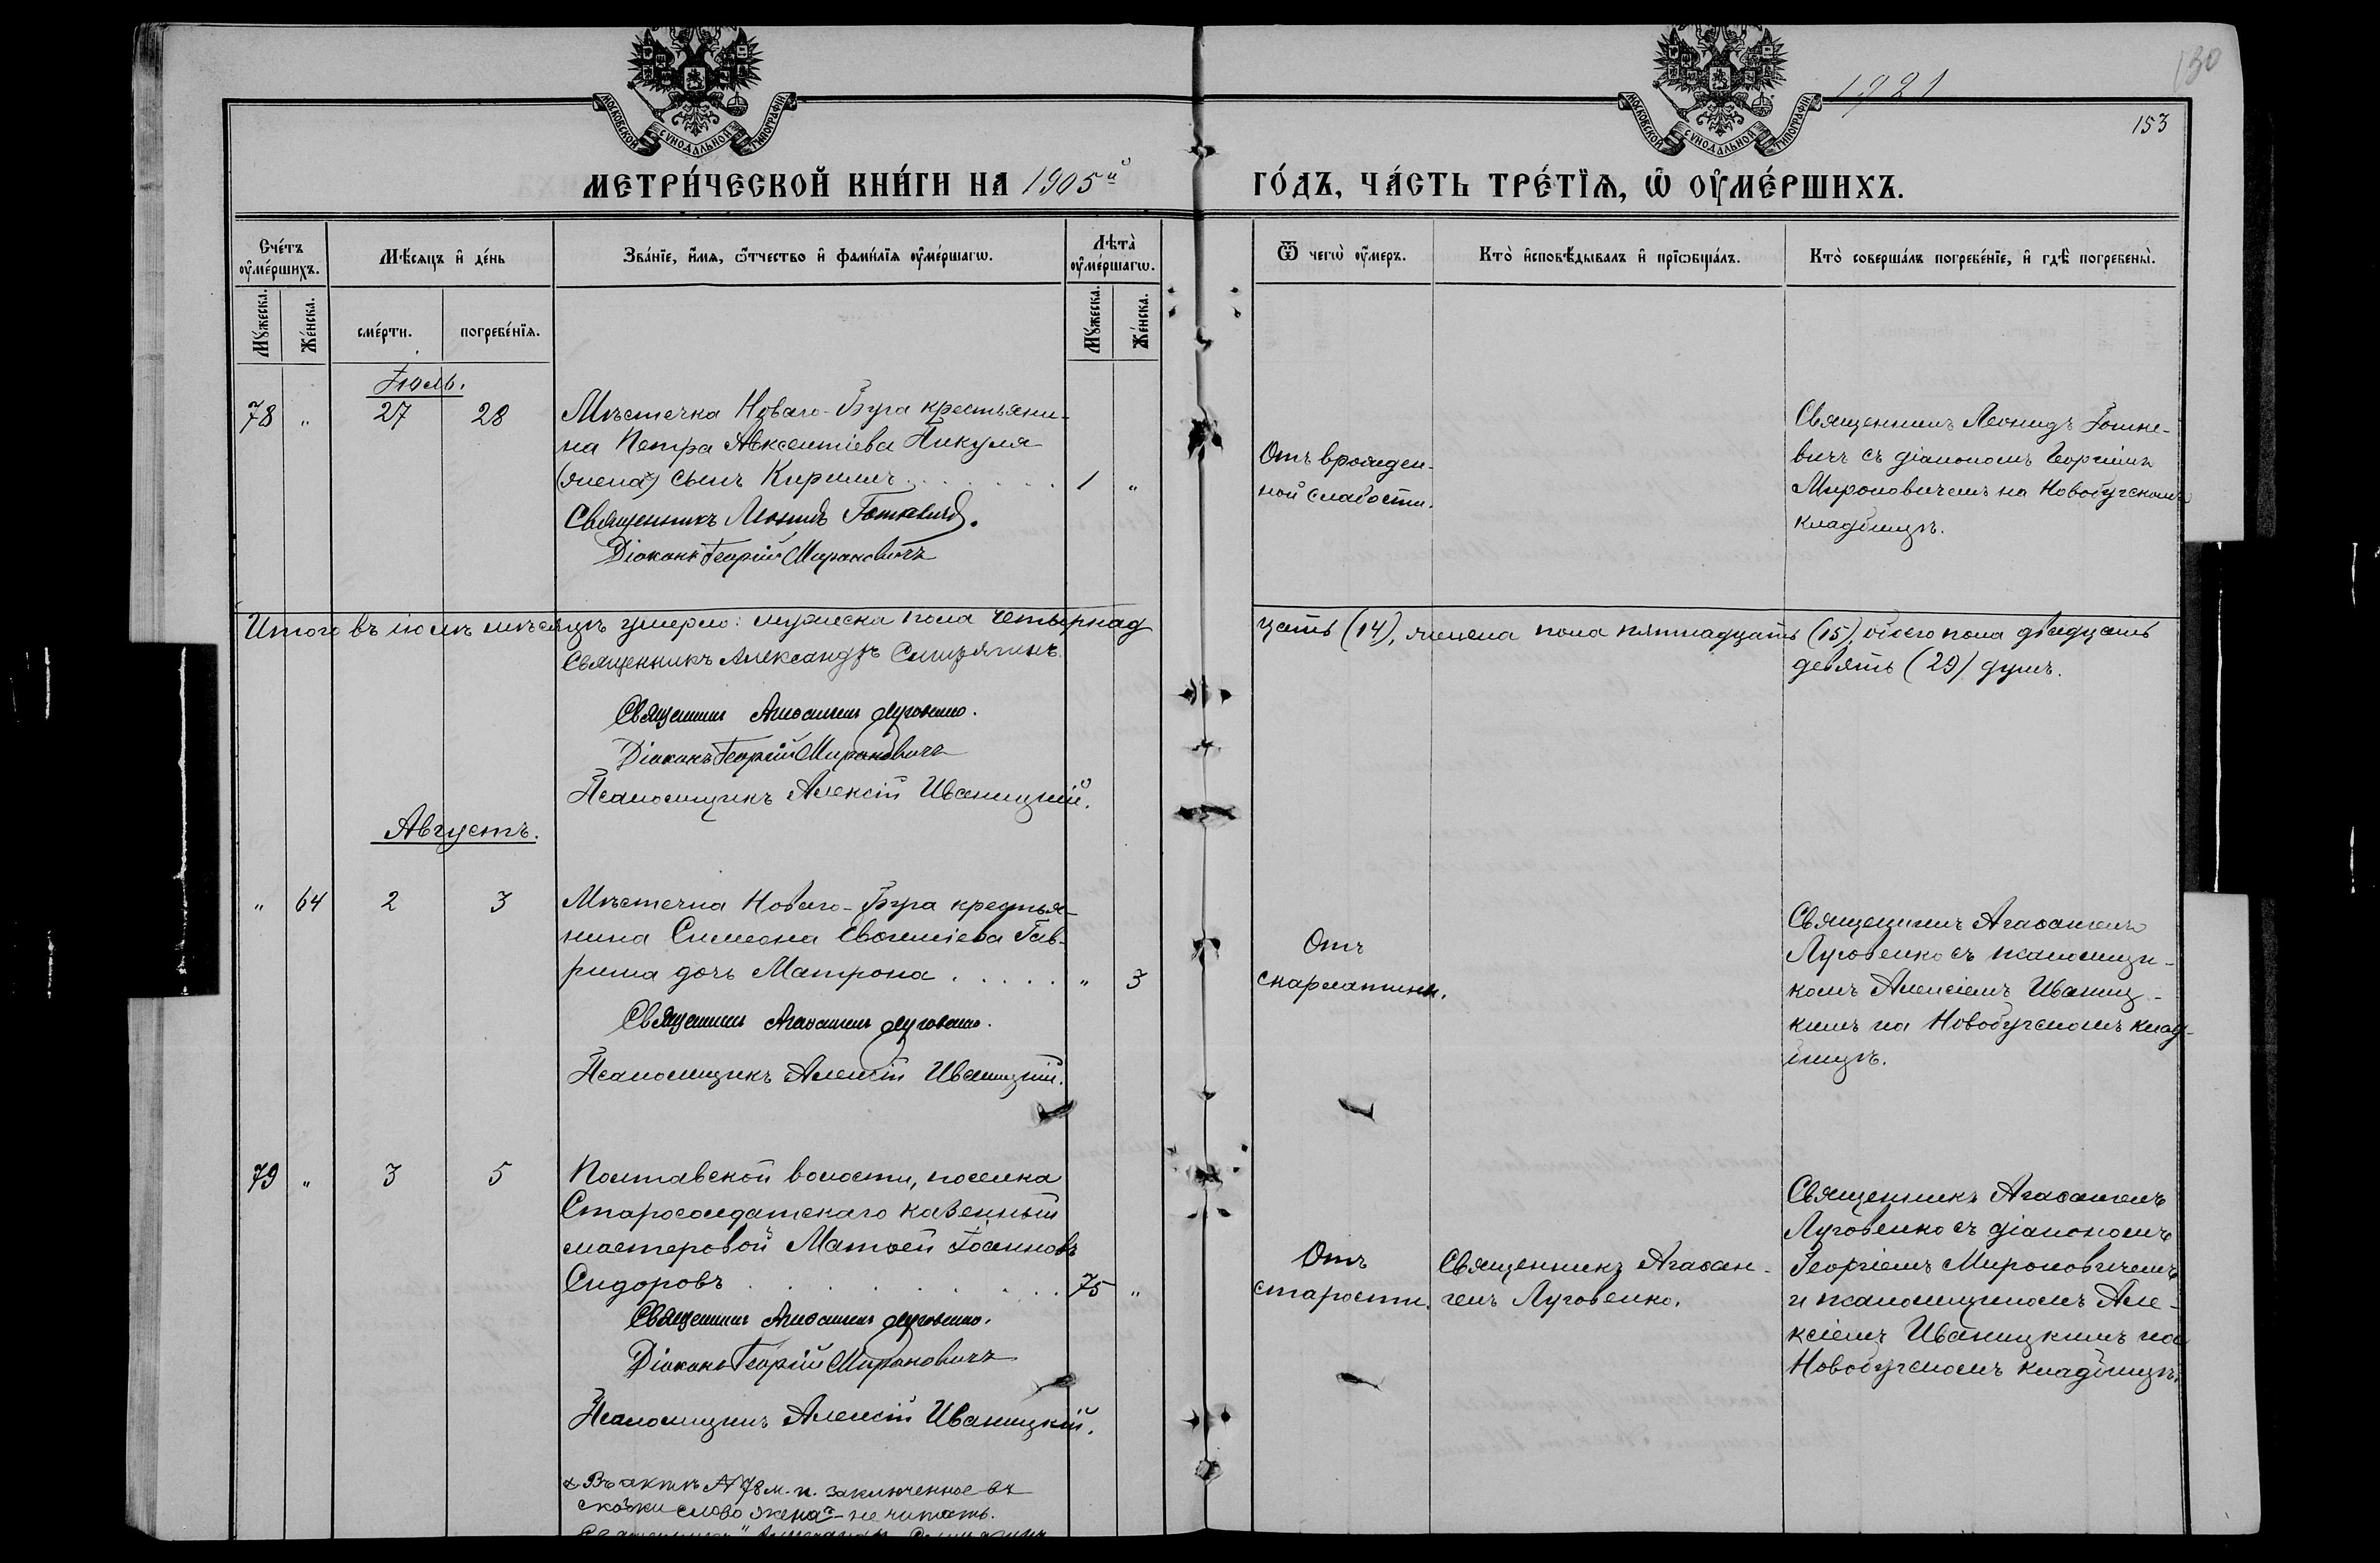 МОСКОВСКОЙ СѴНОДАЛЬНОЙ ТИПОГРАФІИ
МОСКОВСКОЙ СѴНОДАЛЬНОЙ ТИПОГРАФІИ
1921
130
153
МЕТРИ́ЧЕСКОЙ КНИ́ГИ НА 1905й
ГО́ДЪ, ЧА́СТЬ ТРЕ́ТЇѦ, Ѡ҆ ОУ҆МЕ́РШИХЪ.
Сче́тъ оу҆ме́ршихъ.
Мѣ́сяцъ и҆ де́нь
Зва́нїе, и҆́мѧ, ѻ҆́тчество и҆ фами́лїѧ оу҆ме́ршагѡ.
Лѣ́та оу҆ме́ршагѡ.
Ѿ чегѡ̀ оу҆́меръ.
Кто̀ и҆сповѣ́дывалъ и҆ прїѡбща́лъ.
Кто̀ соверша́лъ погребе́нїе, и҆ гдѣ̀ погребены̀.
Мꙋ́жеска.
Же́нска.
сме́рти.
погребе́нїѧ.
Мꙋ́жеска.
Же́нска.
Іюль.
78 " 27 28
Мѣстечка Новаго-Буга крестьяни-
на Петра Авксентіева Пикуля
(жена) сынъ Кириллъ . . . . . . . 1 "
Священникъ Леонидъ Готкевичъ.
Діаконъ Георгій Мироновичъ
Отъ врожден-
ной слабости.
Священникъ Леонидъ Готке-
вичъ съ діакономъ Георгіемъ
Мироновичемъ на Новобугскомъ
кладбищѣ.
Итого въ іюлѣ мѣсяцѣ умерло: мужеска пола четырнад
цать (14), женска пола пятнадцать (15), обоего пола двадцать
девять (29) душъ.
Священникъ Александръ
Священникъ Агаѳангелъ Луговенко.
Діаконъ Георгій Мироновичъ
Псаломщикъ Алексій Иваницкій.
Августъ.
" 64 2 3
Мѣстечка Новаго-Буга крестья-
нина Симеона Евѳиміева Гав-
риша дочь Матрона . . . . . " 3
Священникъ Агаѳангелъ Луговенко.
Псаломщикъ Алексій Иваницкій.
Отъ
скарлатины.
Священникъ Агаѳангелъ
Луговенко съ псаломщи-
комъ Алексіемъ Иваниц-
кимъ на Новобугскомъ клад-
бищѣ.
79 " 3 5
Полтавской волости, поселка
Старосолдатскаго казенный
мастеровой Матѳей Іоанновъ
Сидоровъ . . . . . . . . 75 "
Священникъ Агаѳангелъ Луговенко.
Діаконъ Георгій Мироновичъ
Псаломщикъ Алексій Иваницкій.
Отъ
старости.
Священникъ Агаѳан-
гелъ Луговенко.
Священникъ Агаѳангелъ
Луговенко съ діакономъ
Георгіемъ Мироновичемъ
и псаломщикомъ Але-
ксіемъ Иваницкимъ на
Новобугскомъ кладбищѣ.
Въ актѣ № 78 м. п. заключенное въ
скобки слово "жена" - не читать.